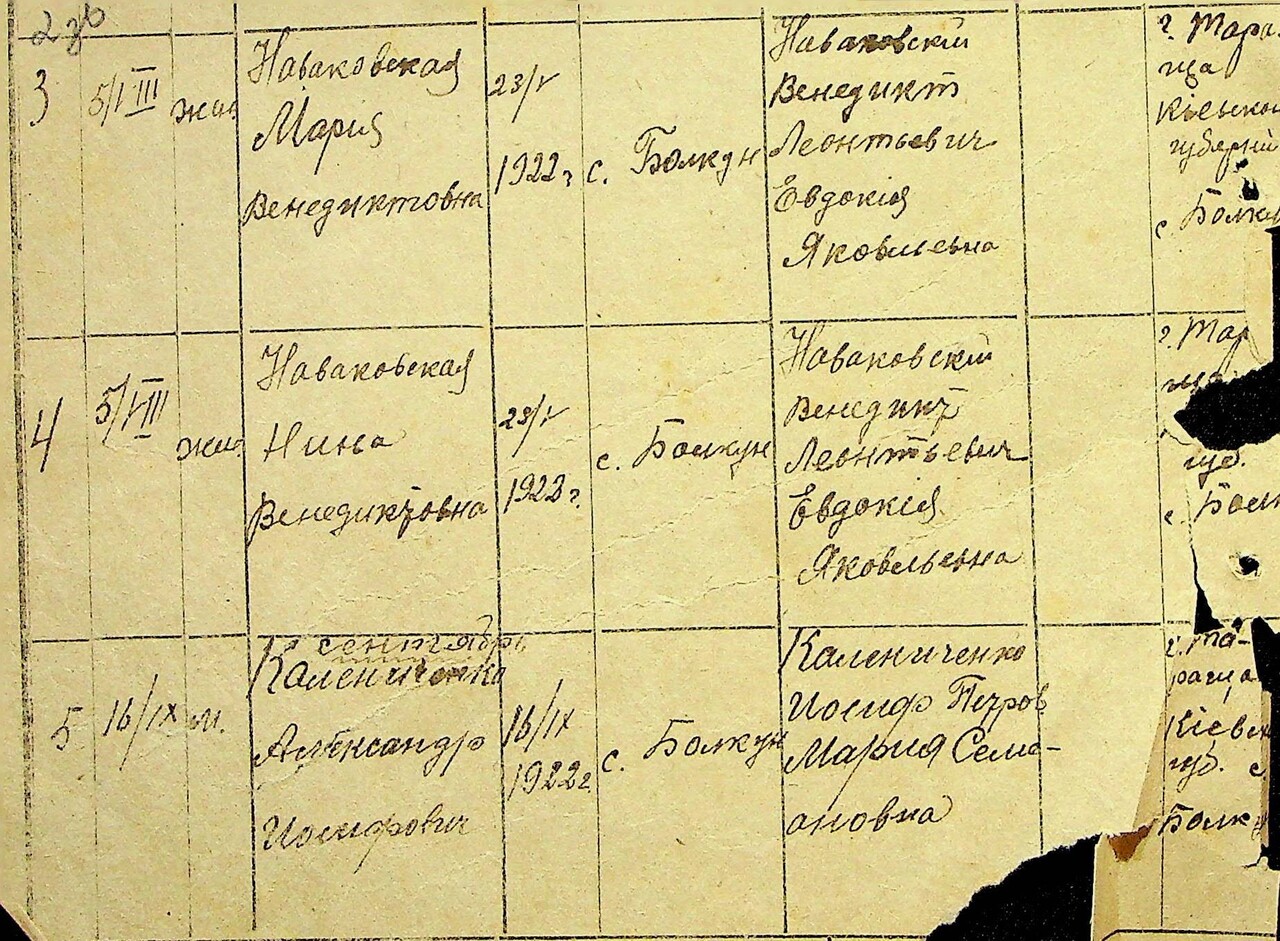 3
5/VIII
жен.
Наваковская
Мария
Венедиктовна
23/V
1922 г
с. Болкун
Наваковский
Венедикт
Леонтьевич
Евдокія
Яковльевна
г. Тара
ща
Кіевско
губерний
с. Болку
4
5/VIII
жен.
Наваковская
Нина
Венедиктовна
23/V
1922 г.
с. Болкун
Наваковский
Венедикт
Леонтьевич
Евдокія
Яковльевна
г. Тар
губ.
с. Болк
сентябрь
5
16/IX
м.
Калениченко
Александр
Иосифович
16/IX
1922 г
с. Болкун
Калениченко
Иосиф Петров
Мария Семе-
ановна
г. Та-
раща
Кіевск
губ. с.
Болк